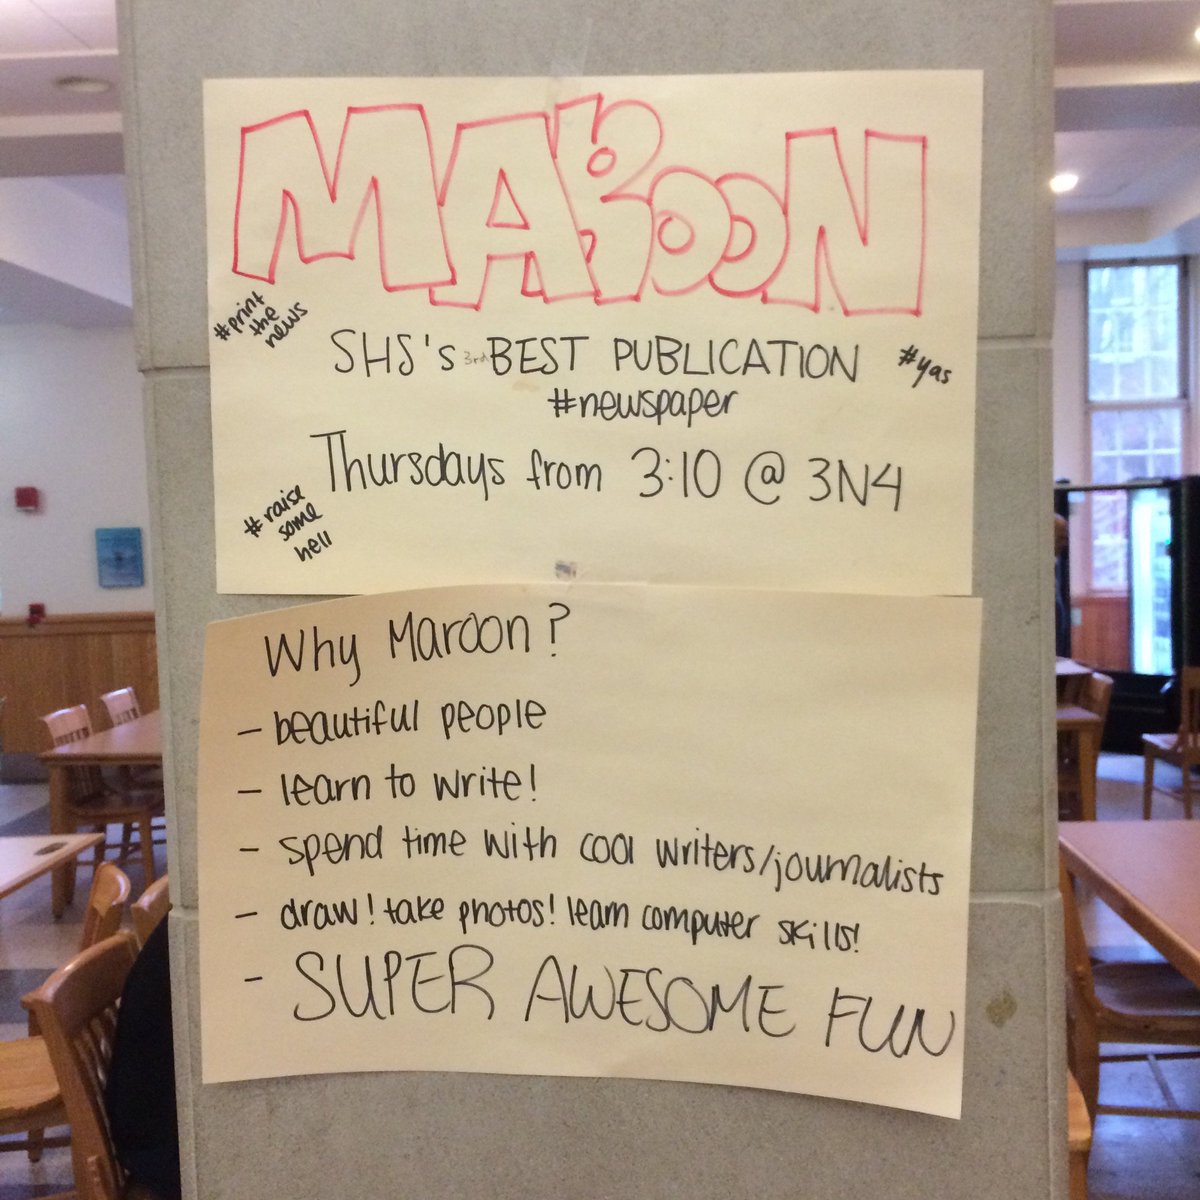 MAROON
#print
the
news
SHS's 3rd BEST PUBLICATION
#yas
#newspaper
Thursdays from 3:10 @ 3N4
#raise
some
hell
Why Maroon?
- beautiful people
- learn to write!
- spend time with cool writers/journalists
- draw! take photos! learn computer skills!
- SUPER AWESOME FUN